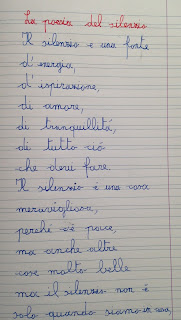 La poesia del silenzio
Il silenzio è una fonte
d'energia,
d'ispirazione,
di amore,
di tranquillità,
di tutto ciò
che devi fare.
Il silenzio è una cosa
meravigliosa,
perché c'è pace,
ma anche altre
cose molto belle
ma il silenzio non è
solo quando siamo in